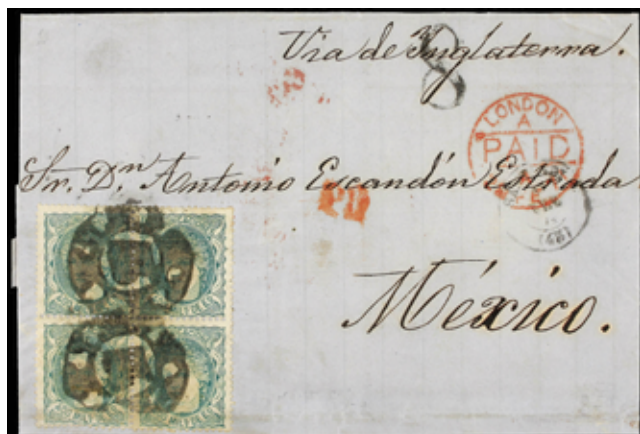 Via de Inglaterra.
8
LONDON
A
PAID
Sr. Dn. Antonio Escandón Estrada
PD
México.